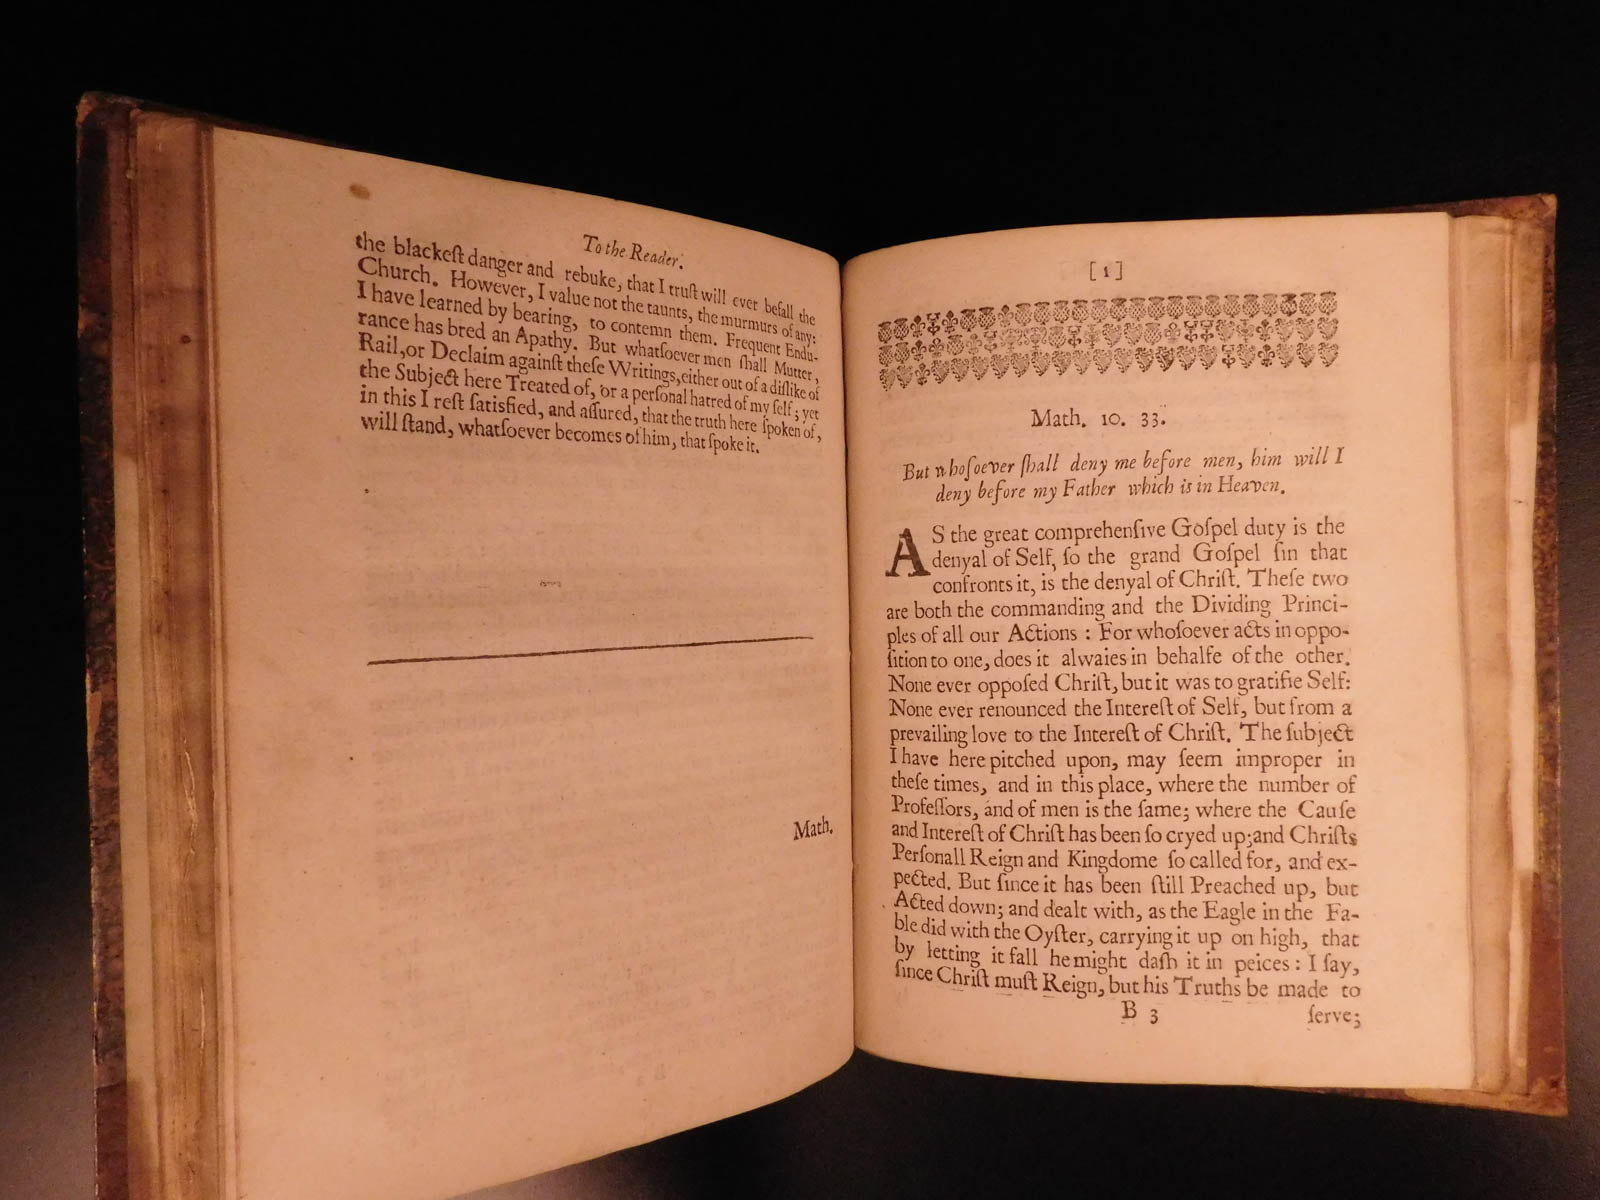 To the Reader.
the blackeſt danger and rebuke, that I truſt will ever befall the
Church. However, I value not the taunts, the murmurs of any:
I have learned by bearing, to contemn them. Frequent Endu-
rance has bred an Apathy. But whatſoever men ſhall Mutter,
Rail, or Declaim againſt theſe Writings, either out of a diſlike of
the Subject here Treated of, or a perſonal hatred of my ſelf; yet
in this I reſt ſatisfied, and aſſured, that the truth here ſpoken of,
will ſtand, whatſoever becomes of him, that ſpoke it.
Math.
[1]
Math. 10. 33.
But whoſoever ſhall deny me before men, him will I
deny before my Father which is in Heaven.
AS the great comprehenſive Goſpel duty is the
denyal of Self, ſo the grand Goſpel ſin that
confronts it, is the denyal of Chriſt. Theſe two
are both the commanding and the Dividing Princi-
ples of all our Actions : For whoſoever acts in oppo-
ſition to one, does it alwaies in behalfe of the other.
None ever oppoſed Chriſt, but it was to gratifie Self:
None ever renounced the Intereſt of Self, but from a
prevailing love to the Intereſt of Chriſt. The ſubject
I have here pitched upon, may ſeem improper in
theſe times, and in this place, where the number of
Profeſſors, and of men is the ſame; where the Cauſe
and Intereſt of Chriſt has been ſo cryed up; and Chriſts
Perſonall Reign and Kingdome ſo called for, and ex-
pected. But ſince it has been ſtill Preached up, but
Acted down; and dealt with, as the Eagle in the Fa-
ble did with the Oyſter, carrying it up on high, that
by letting it fall he might daſh it in peices : I ſay,
ſince Chriſt muſt Reign, but his Truths be made to
B 3
ſerve;